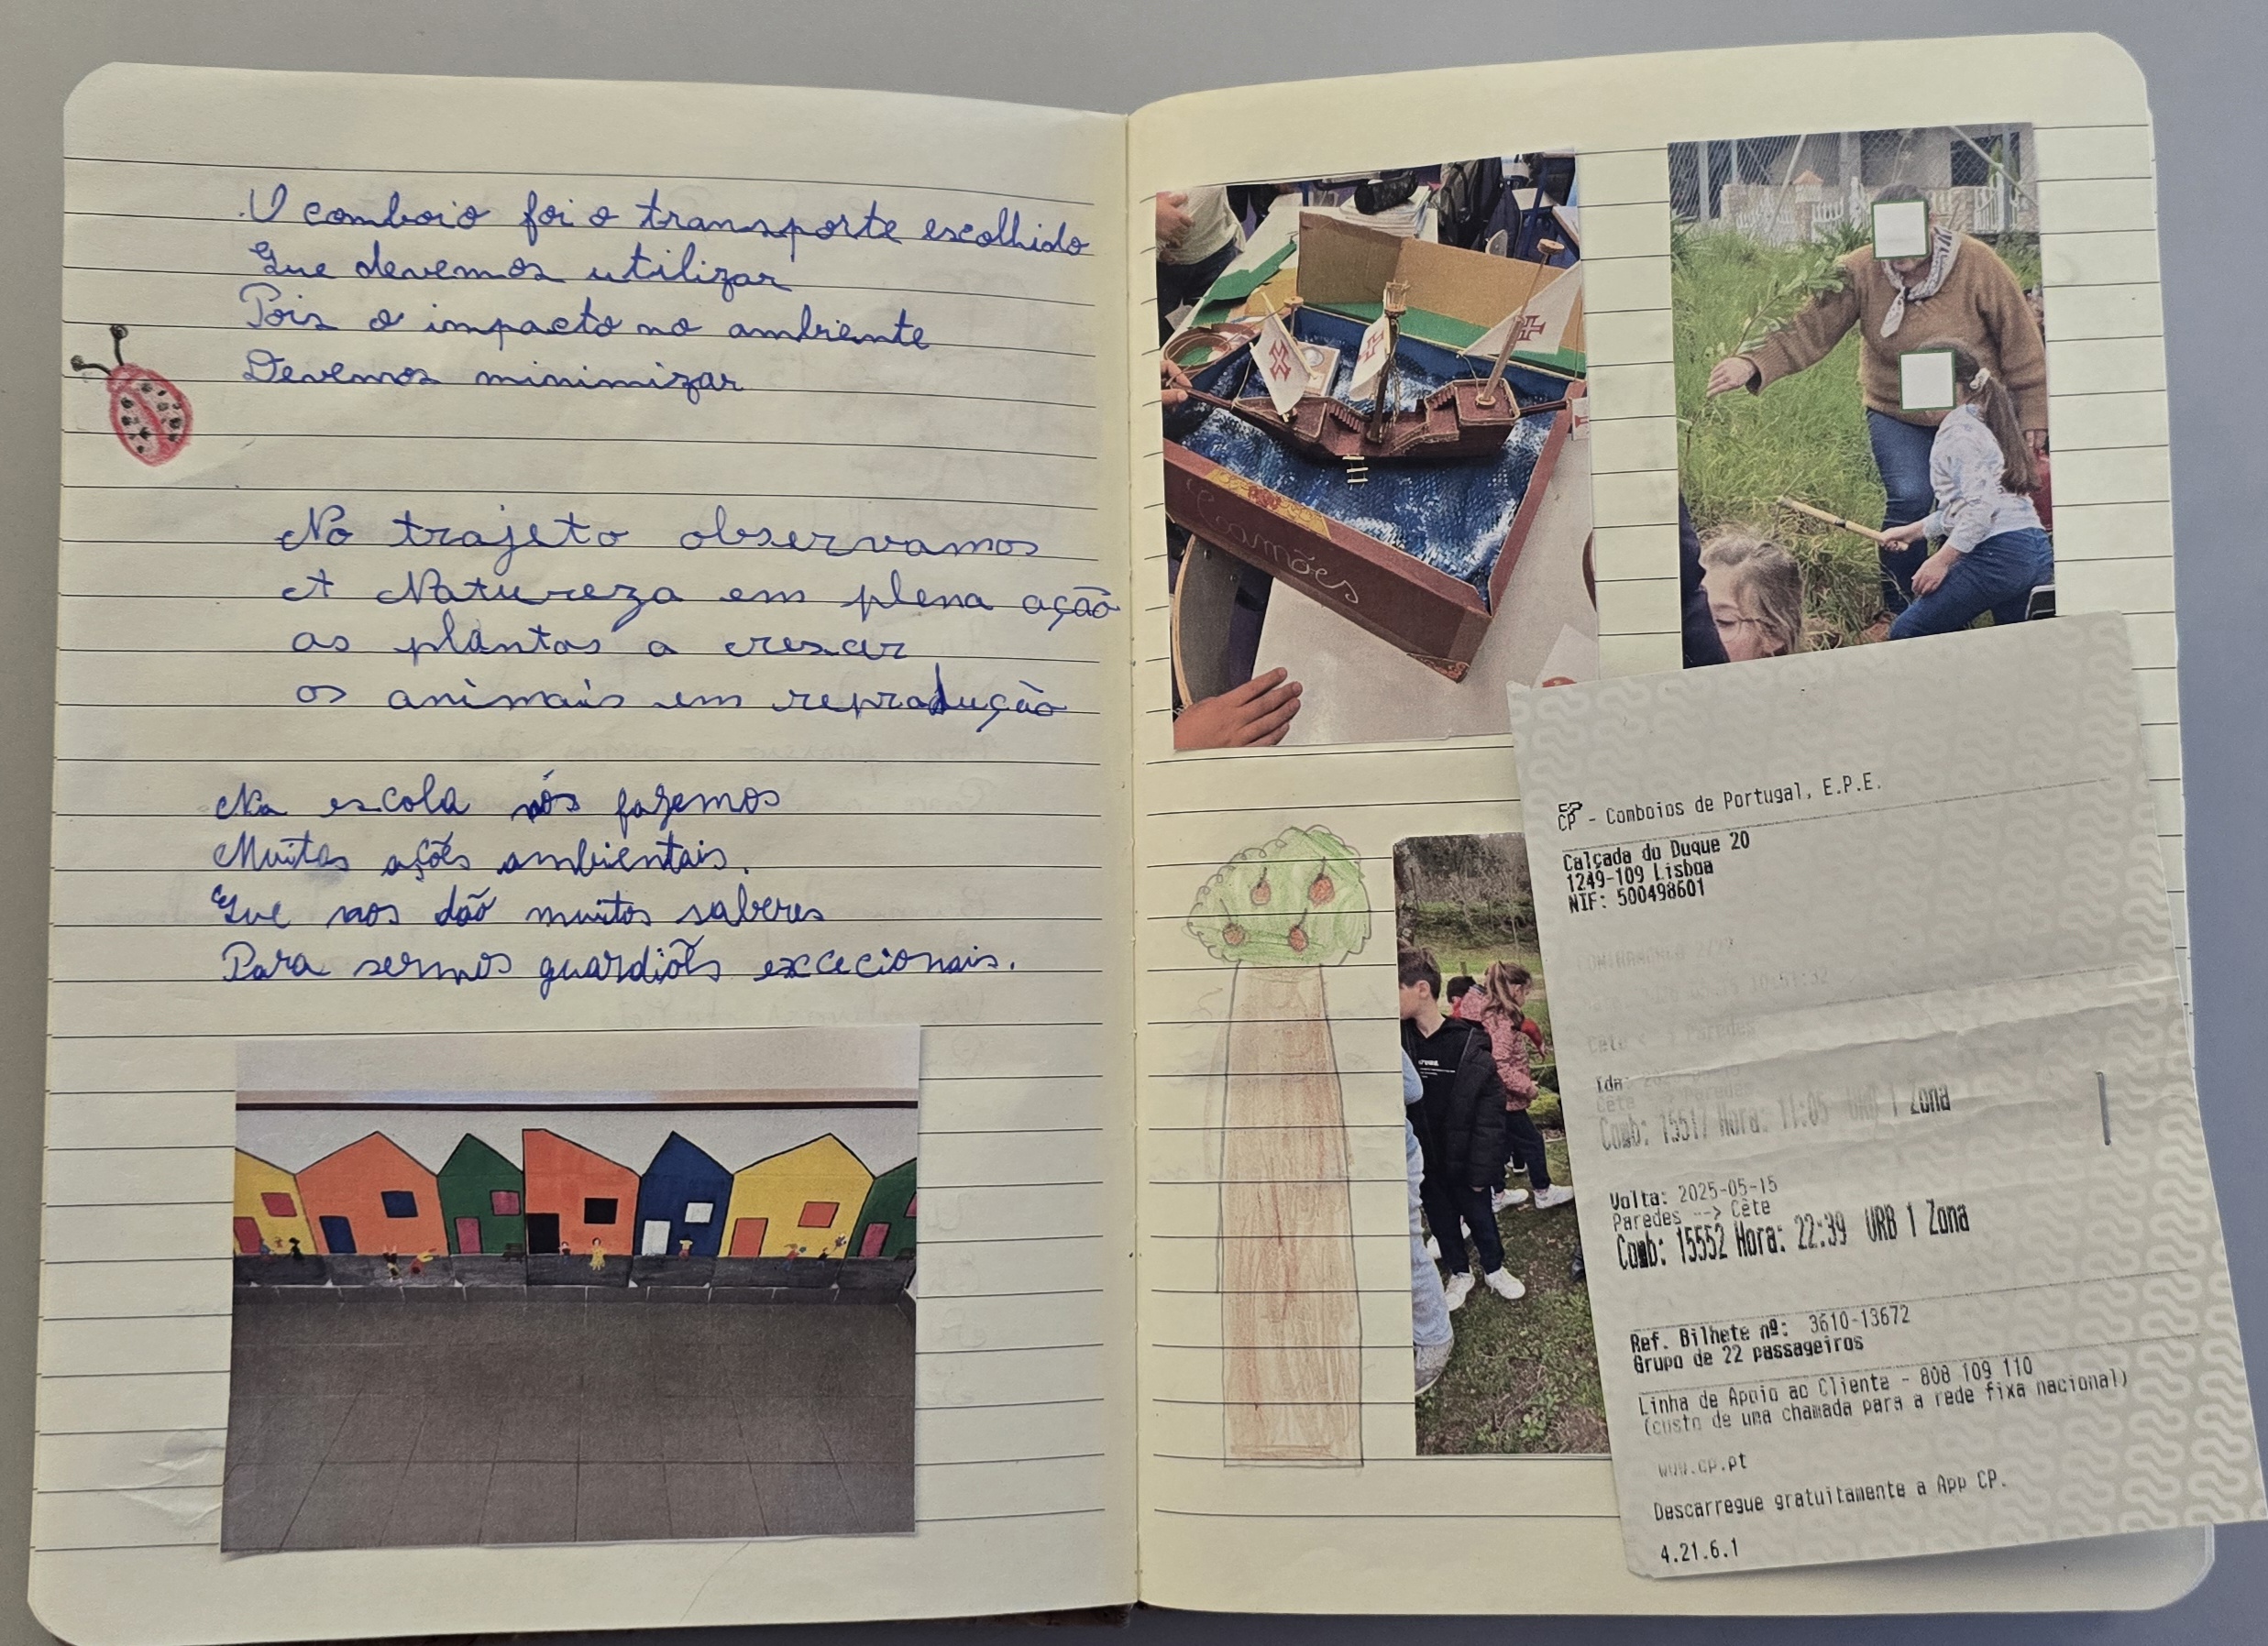 O comboio foi o transporte escolhido
Que devemos utilizar
Pois o impacto no ambiente
Devemos minimizar
No trajeto observamos
A Natureza em plena ação
as plantas a crescer
os animais em reprodução
Na escola nós fazemos
Muitas ações ambientais.
Que nos dão muitos saberes
Para sermos guardiões excecionais.
Camões
CP - Comboios de Portugal, E.P.E.
Calçada do Duque 20
1249-109 Lisboa
NIF: 500498601
Cête <-> Paredes
Ida:
Cête --> Paredes
Comb: 15517 Hora: 11:05 URB 1 Zona
Volta: 2025-05-15
Paredes --> Cête
Comb: 15552 Hora: 22:39 URB 1 Zona
Ref. Bilhete nº: 3610-13672
Grupo de 22 passageiros
Linha de Apoio ao Cliente - 808 109 110
(custo de uma chamada para a rede fixa nacional)
www.cp.pt
Descarregue gratuitamente a App CP.
4.21.6.1